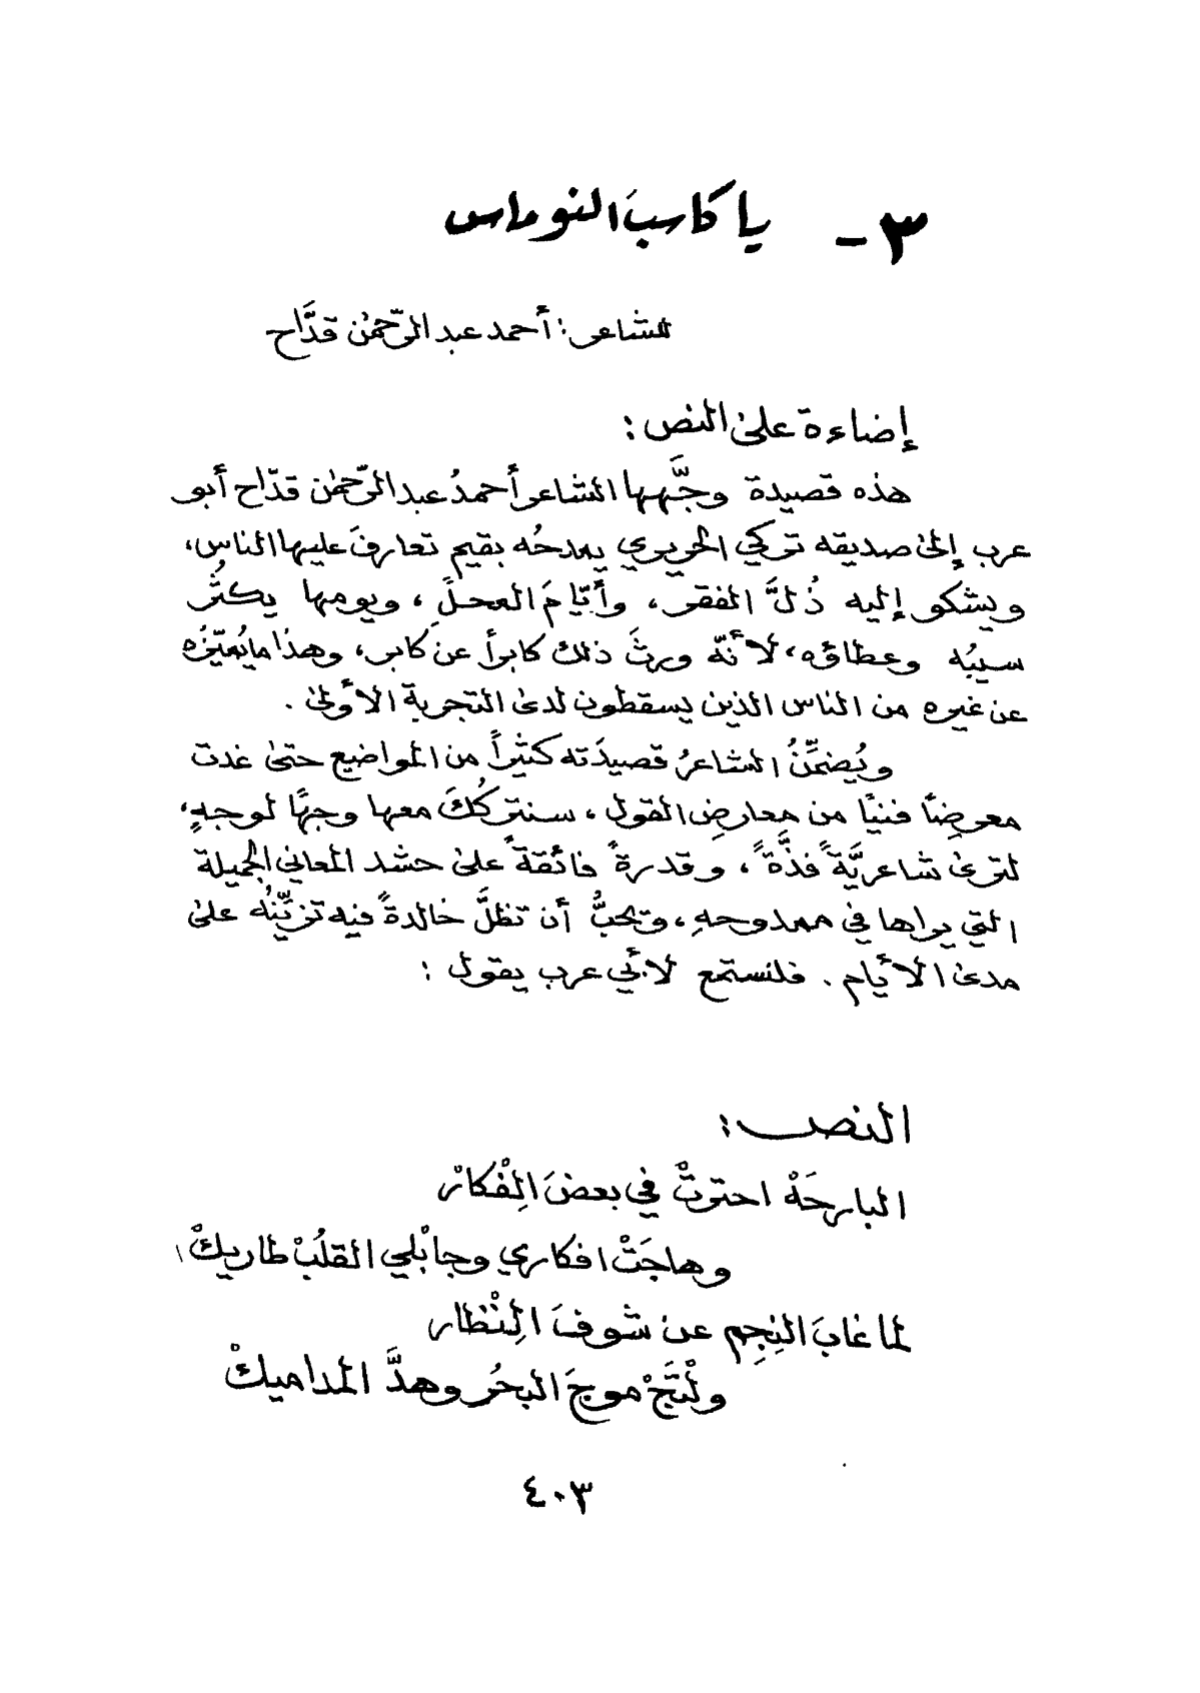 ٣ - يا كاسبَ النوماس
للشاعر: أحمد عبد الرّحمٰن قدَّاح
إضاءة علىٰ النص:
هذه قصيدة وجَّهها الشاعر أحمدُ عبد الرّحمٰن قدّاح أبو
عرب إلىٰ صديقه تركي الحريري يمدحُه بقيم تعارفَ عليها الناس،
ويشكو إليه ذُلَّ الفقر، وأيّامَ المحلِ، ويومها يكثُر
سيبُه وعطاؤه، لأنّه ورثَ ذلك كابراً عن كابر، وهذا مايُميّزُه
عن غيره من الناس الذين يسقطون لدىٰ التجربة الأولىٰ.
ويُضمِّنُ الشاعرُ قصيدَته كثيراً من المواضيع حتىٰ غدت
معرضاً فنيّاً من معارضِ القول، سنتركُكَ معها وجهًا لوجهٍ،
لترىٰ شاعريَّةً فذَّةً، وقدرةً فائقةً علىٰ حشد المعاني الجميلة
التي يراها في ممدوحهِ، ويحبُّ أن تظلَّ خالدةً فيه تزيّنُه علىٰ
مدىٰ الأيام. فلنستمع لأبي عرب يقول:
النص:
البارحَهْ احترتْ في بعضَ الِفْكارْ
وهاجَتْ افكاري وجابْلي القلُبْ طاريكْ ١
لما غابَ النِجِم عن شوفَ الِنْظار
ولْتَجْ موجَ البحُر وهدَّ المداميكْ
٤٠٣